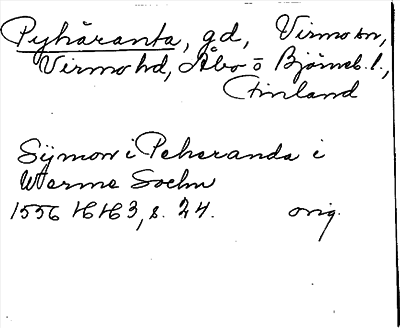 Pyhäranta, gd, Virmo sn,
Virmo hd, Åbo o Björneb. l.,
Finland
Sÿmon i Peheranda i
Werme Sochn
1556 HH3, s. 24. orig.